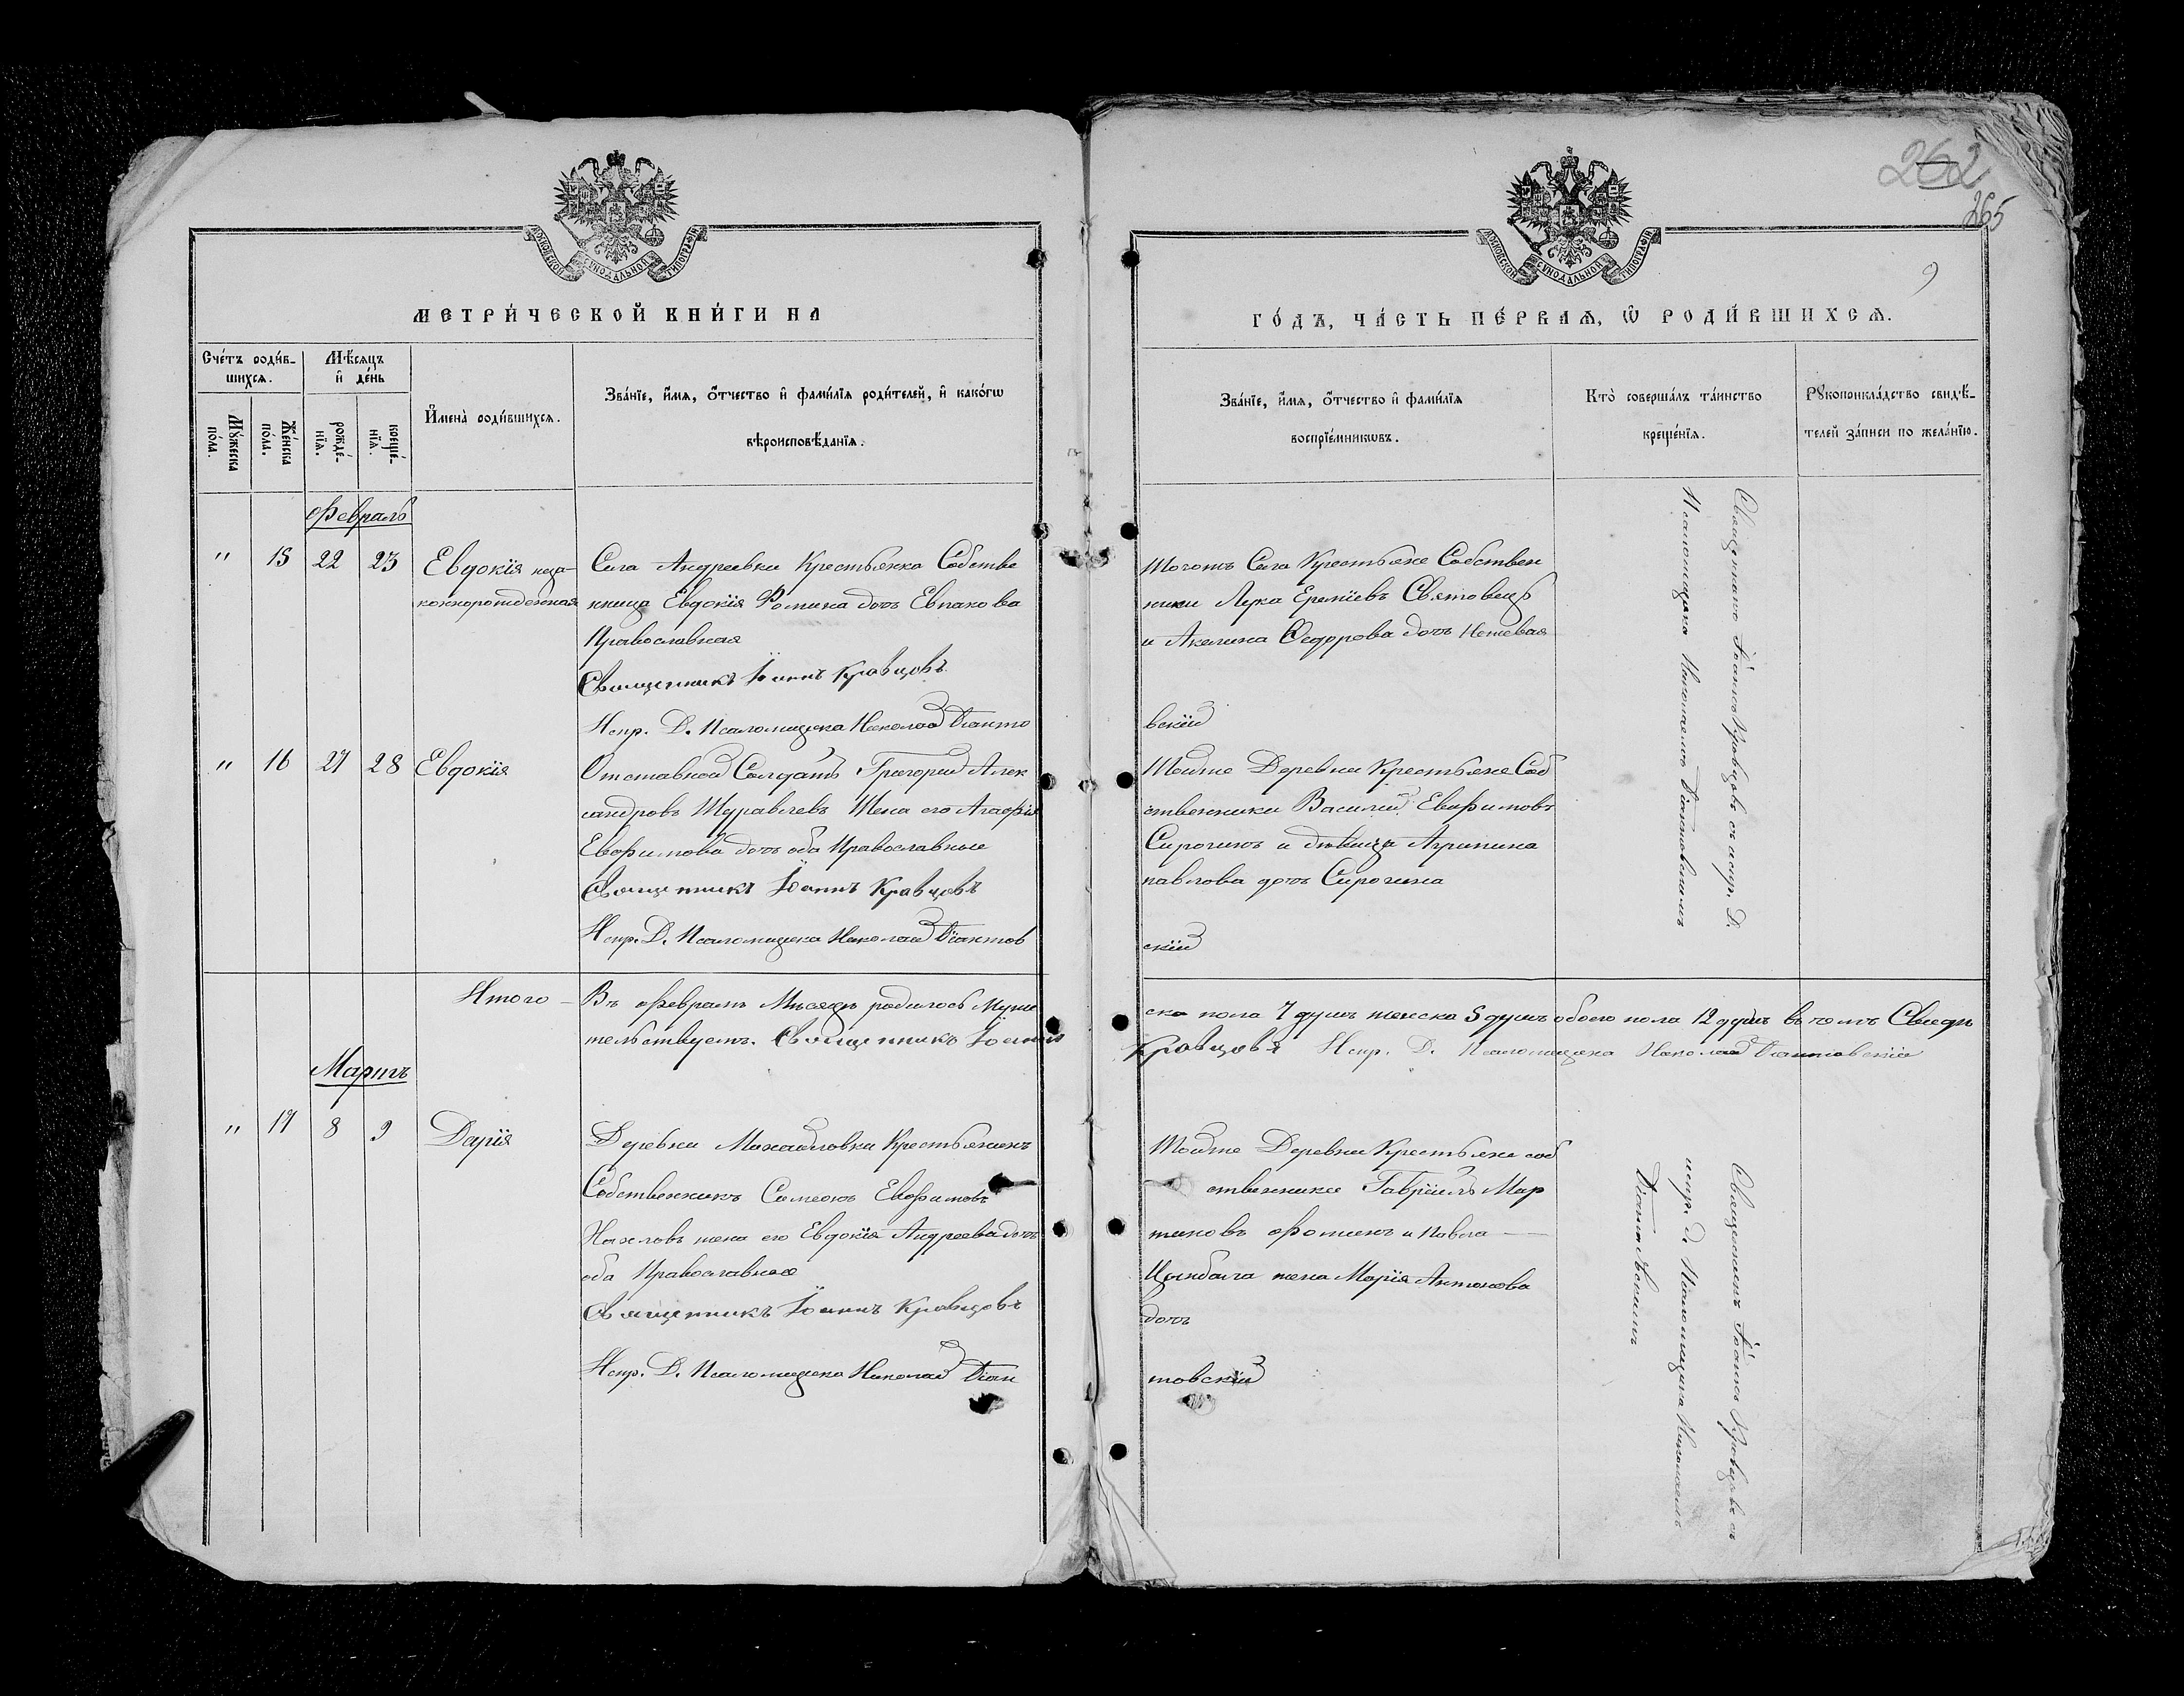 262
265
9
МОСКОВСКОЙ СѴНОДАЛЬНОЙ ТИПОГРАФІИ
МЕТРИ́ЧЕСКОЙ КНИ́ГИ НА
Сче́тъ роди́в-
шихсѧ.
Мѣ́сѧцъ
и҆ де́нь
Мꙋ́жеска
по́ла.
Же́нска
по́ла.
рожде́-
нїѧ.
креще́-
нїѧ.
И҆мена̀ роди́вшихсѧ.
Зва́нїе, и҆́мѧ, ѻ҆́тчество и҆ фами́лїѧ роди́телей, и҆ како́гѡ
вѣроисповѣ́данїѧ.
Февраль
" 15 22 23 Евдокія неза-
коннорожденная
Села Андреевки Крестьянка Собстве
нница Евдокія Фомина дочь Евпакова
Православная
Священникъ Іоаннъ Кравцовъ
Испр. Д. Псаломщика Николай Діанто
" 16 27 28 Евдокія
Отставной Солдатъ Григорий Алек
сандровъ Журавлевъ Жена его Агафія
Евфимова дочь оба Православные
Священникъ Іоаннъ Кравцовъ
Испр. Д. Псаломщика Николай Діантов
Итого –
Въ Февралѣ Мѣсяцѣ родилось Муже
тельствуемъ. Священникъ Іоаннъ
Мартъ
" 17 8 9 Дарія
Деревни Михайловки Крестьянинъ
Собственникъ Симеонъ Евфимовъ
жена его Евдокія Андреева дочь
оба Православные
Священникъ Іоаннъ Кравцовъ
Испр. Д. Псаломщика Николай Діан
МОСКОВСКОЙ СѴНОДАЛЬНОЙ ТИПОГРАФІИ
ГО́ДЪ, ЧА́СТЬ ПЕ́РВАѦ, Ѽ РОДИ́ВШИХСѦ.
Зва́нїе, и҆́мѧ, ѻ҆́тчество и҆ фами́лїѧ
воспрїе́мникѡвъ.
Кто̀ соверша́лъ та́инство
креще́нїѧ.
Рꙋкоприкла́дство свидѣ́-
телей за́писи по жела́нїю.
Тогожъ Села Крестьяне Собствен
ники Лука Ереміевъ Святовецъ
и Акелина Федорова дочь
вскій
Тойже Деревни Крестьяне Соб
ственники Василий Евфимовъ
Сирочинъ и дѣвица Агрипина
павлова дочь Сирочина
скій
ско пола 7 душъ женска 5 душъ обоего пола 12 душъ въ чемъ Свидѣ
Кравцовъ Испр. Д. Псаломщика Николай Діантовскій
Тойже Деревни Крестьяне соб
ственники Гавріилъ Мар
тиновъ Фоминъ и Павла
Цымбала жена Марія Антонова
дочь
товскій
Священникъ Іоаннъ Кравцовъ съ испр. Д.
Псаломщика Николаемъ Діантовскимъ
Священникъ Іоаннъ Кравцовъ съ
испр. Д. Псаломщика Николаемъ
Діантовскимъ